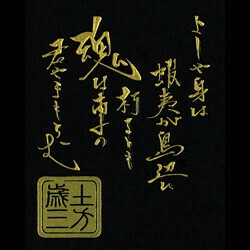 よしや身は
蝦夷が島辺に
朽ちるとも
魂は東の
君やまもらむ
土方
歳三